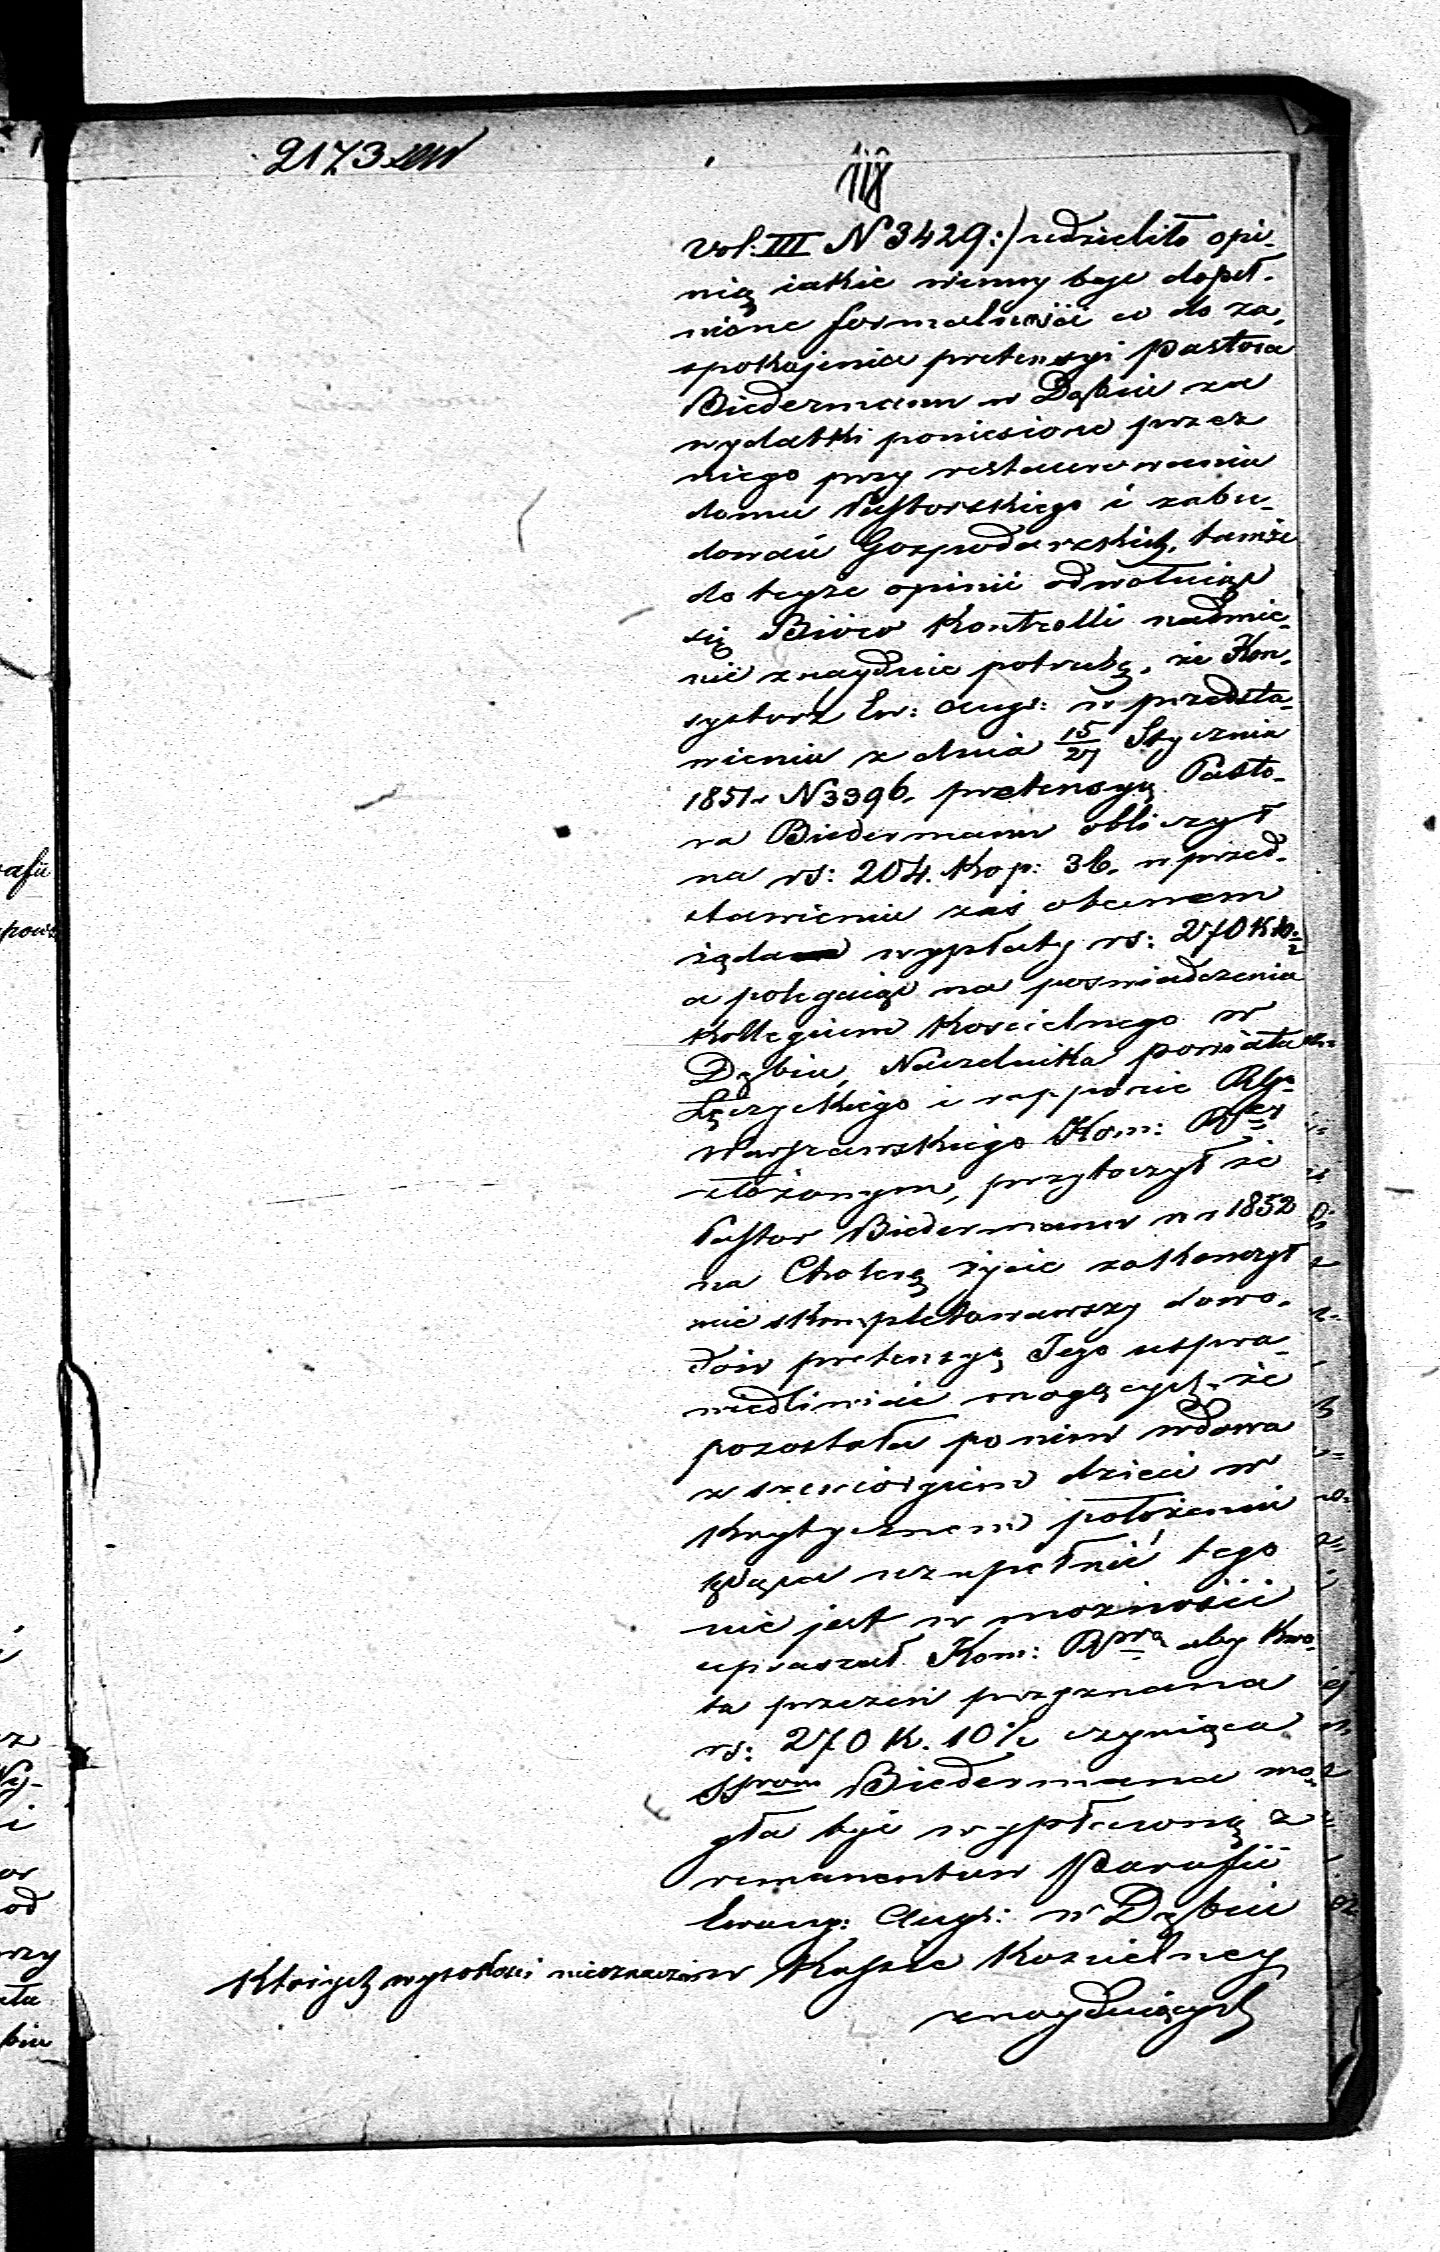 2173
118
Vol: III N 3429:/ udzieliło opi-
nią iakie winny być dopeł-
nione formalności co do za-
spokojenia pretensyi Pastora
Biedermann w Dąbiu za
wydatki poniesione przez
niego przy restaurowaniu
domu Pastorskiego i zabu-
dowań Gospodarskich, tamże
do teyże opinii odwołuiąc
się Bióro Kontrolli nadmie-
nić znayduie potrzebę, że Kon-
systorz Ew: Augs: w przedsta-
wieniu z dnia 15/27 Stycznia
1851 r N 3396. pretensyą Pasto-
ra Biedermann obliczył
na rs: 204. Kop: 36. w przed-
stawieniu zaś obecnem
żąda wypłaty rs: 270 K 10 ½
a polegaiąc na poświadczeniu
Kollegium Kościelnego w
Dąbiu, Naczelnika powiatu
Łęczyckiego i rapporcie Rządu
Warszawskiego Kom: R
złożonym, przytoczył że
Pastor Biedermann w r 1852
na Cholerę życie zakończył
nie skompletowawszy dowo-
dów pretensyą Jego uspra-
wiedliwić mogących, że
pozostała po nim wdowa
z sześciorgiem dzieci w
krytycznem położeniu
będąca uzupełnić tego
nie jest w możności
upraszał Kom: Rową aby Kwo-
ta przezeń przyznana
rs: 270 K. 10½ czyniąca
SSrom Biedermana mo-
gła być wypłaconą z
remanentów Parafii
Ewang: Augs: w Dąbiu
których wysokości nieoznaczono w Kassie Kościelney
znayduiących